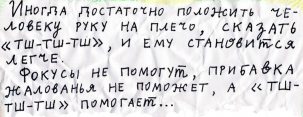 Иногда достаточно положить че-
ловеку руку на плечо, сказать
«тш-тш-тш», и ему становится
легче.
Фокусы не помогут, прибавка
жалованья не поможет, а «тш-
тш-тш» помогает...